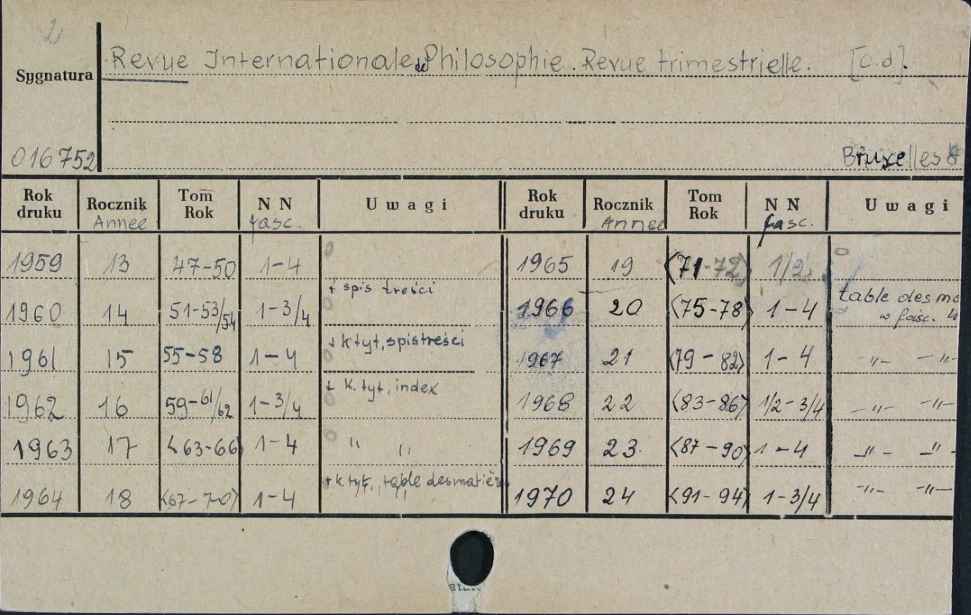 2
Sygnatura
Revue Internationale de Philosophie. Revue trimestrielle. [c.d].
016752
Bruxelles
Rok druku Rocznik Annee Tom Rok NN fasc. Uwagi Rok druku Rocznik Annee Tom Rok NN fasc. Uwagi
1959 13 47-50 1-4 1965 19 <71-72> 1/2
1960 14 51-53/54 1-3/4 + spis treści 1966 20 <75-78> 1-4 table des ma w fasc. 4
1961 15 55-58 1-4 + k tyt, spis treści 1967 21 <79-82> 1-4 -"- -"-
1962 16 59-61/62 1-3/4 + k. tyt, index 1968 22 <83-86> 1/2-3/4 -"- -"-
1963 17 <63-66> 1-4 " " 1969 23. <87-90> 1-4 -"- -"-
1964 18 <67-70> 1-4 + k tyt., table des matiè 1970 24 <91-94> 1-3/4 -"- -"-